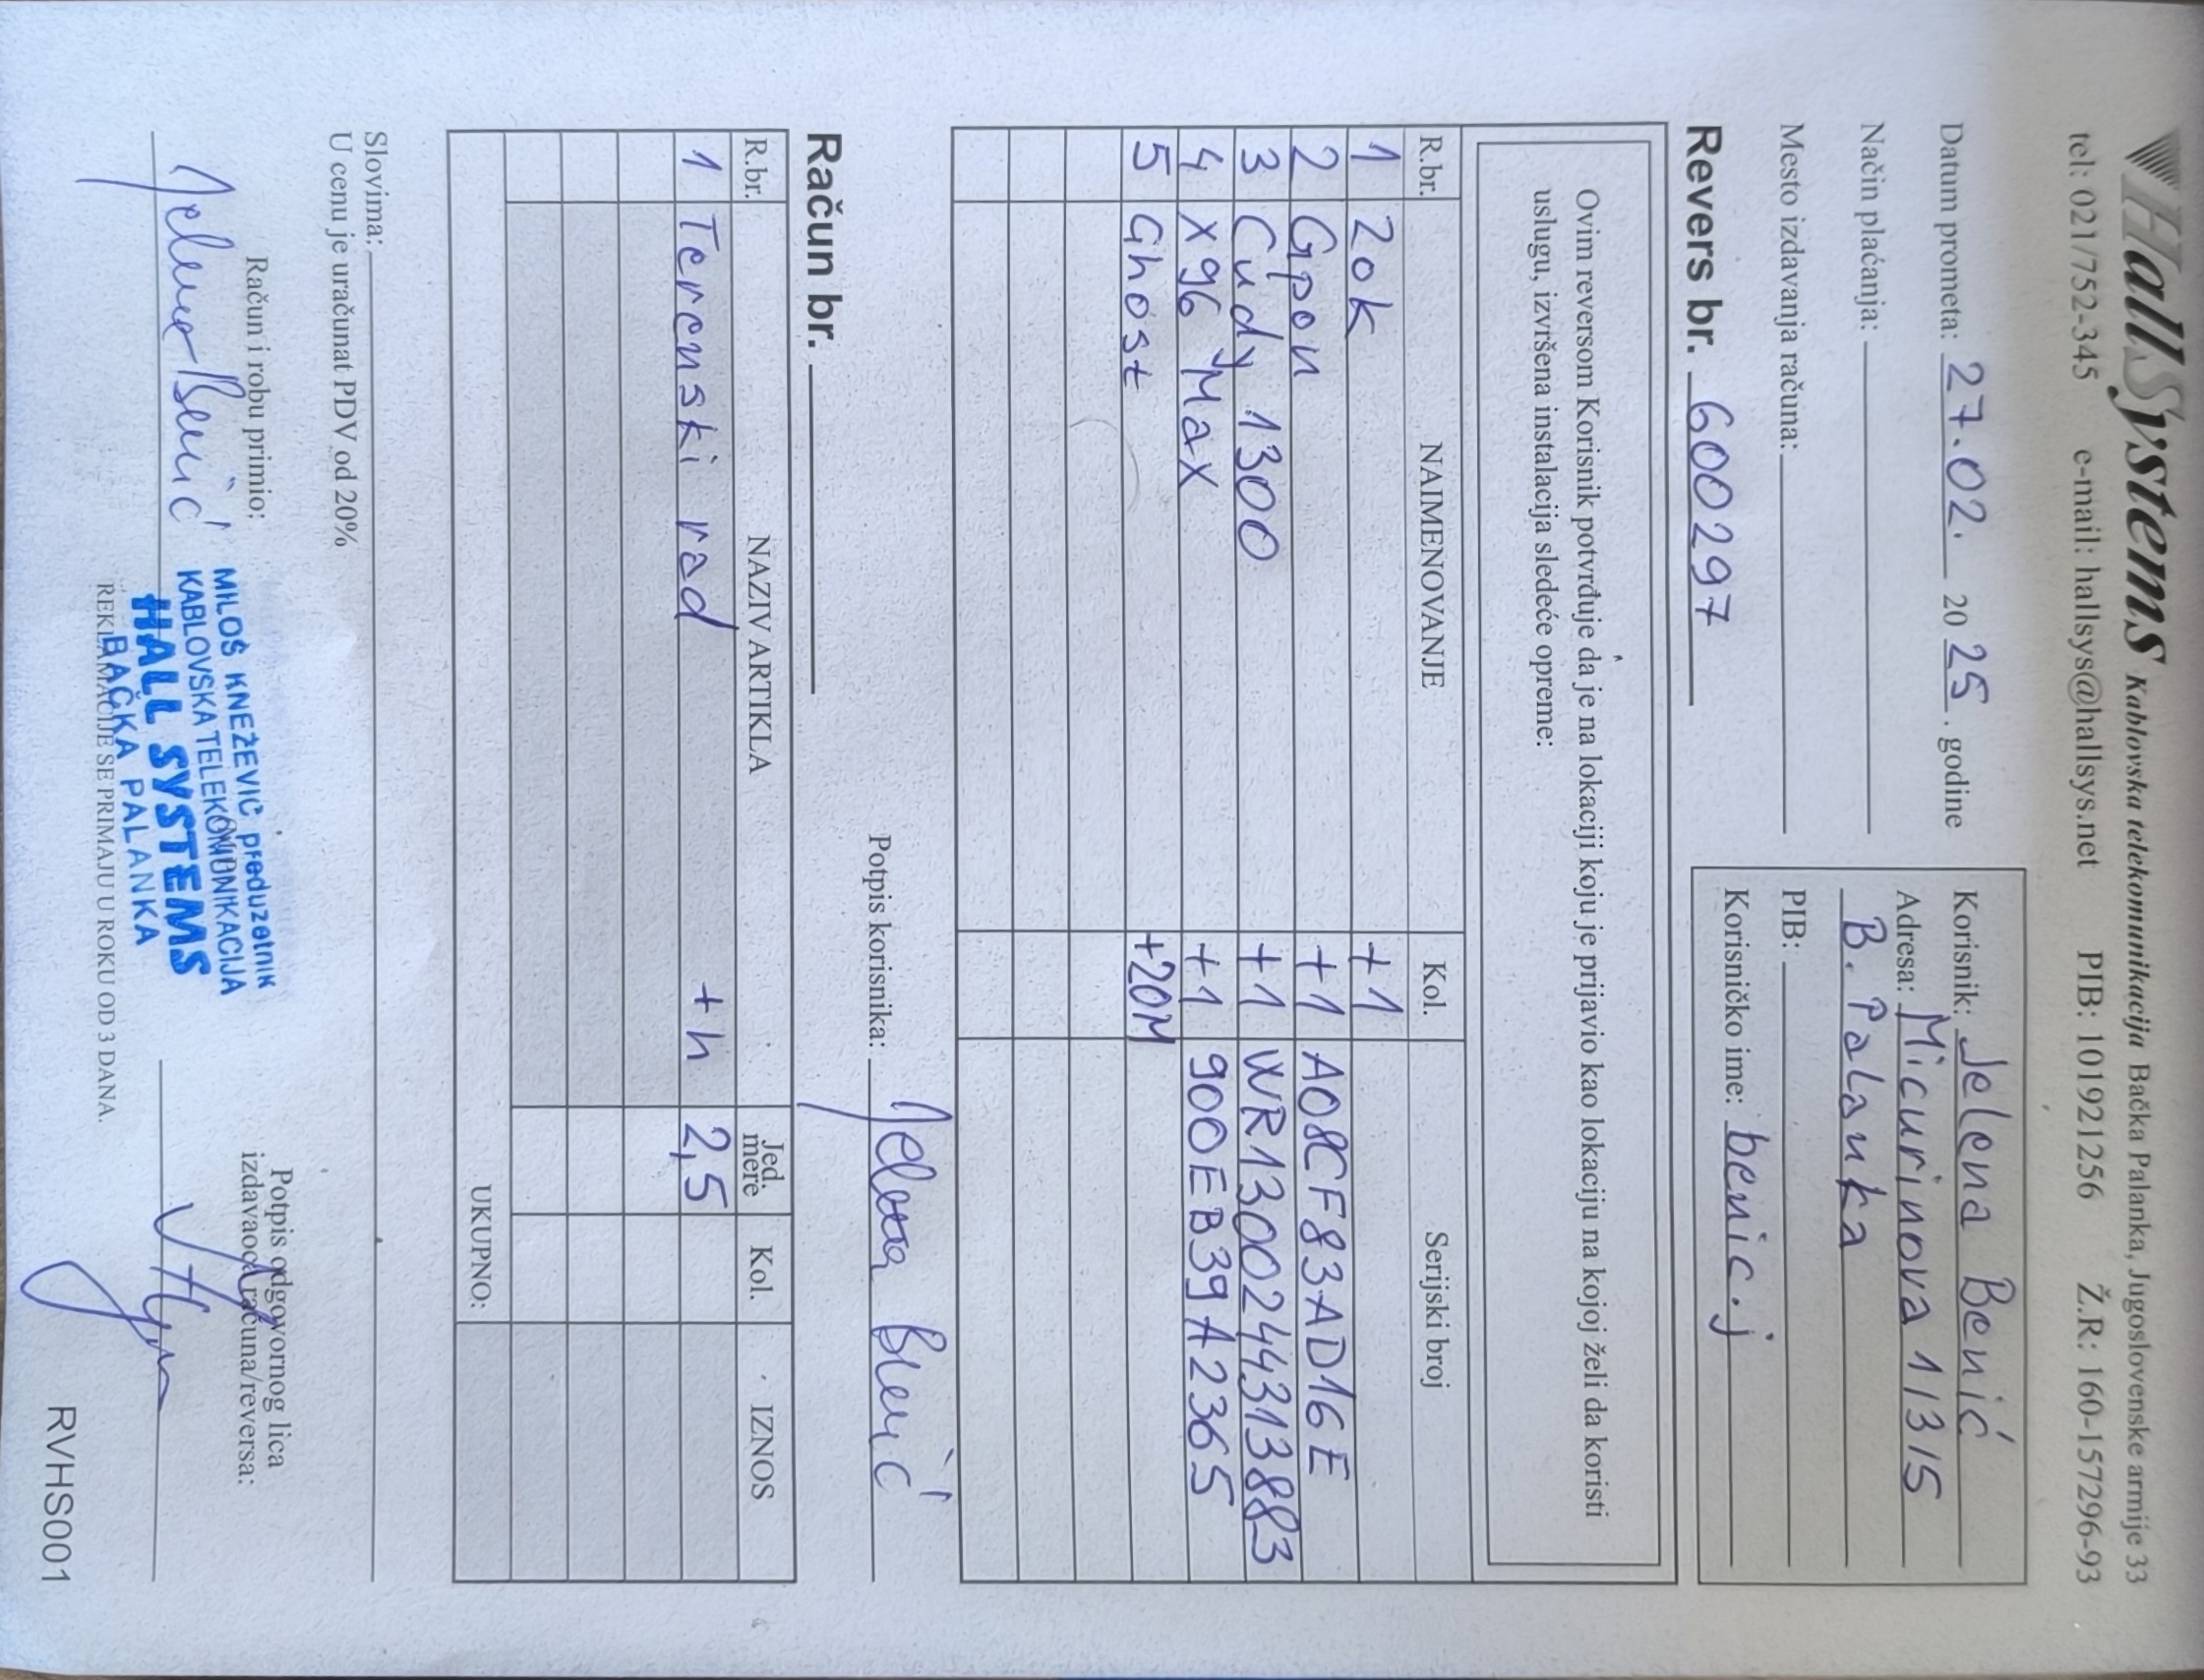 HallSystems Kablovska telekomunikacija Bačka Palanka, Jugoslovenske armije 33
tel: 021/752-345 e-mail: hallsys@hallsys.net PIB: 101921256 Ž.R: 160-157296-93
Datum prometa: 27.02. 20 25. godine
Način plaćanja:
Mesto izdavanja računa:
Korisnik: Jelena Benić
Adresa: Micurinova 113/5
B. Palanka
PIB:
Korisničko ime: benic.j
Revers br. 600297
Ovim reversom Korisnik potvrđuje da je na lokaciji koju je prijavio kao lokaciju na kojoj želi da koristi
uslugu, izvršena instalacija sledeće opreme:
R.br. NAIMENOVANJE Kol. Serijski broj
1 Zok +1
2 Gpon +1 A08CF83AD16E
3 Cudy 1300 +1 WR1300244313883
4 X96 Max +1 900EB39A2365
5 Ghost +20M
Potpis korisnika: Jelena Benić
Račun br.
R.br. NAZIV ARTIKLA Jed. mere Kol. IZNOS
1 Terenski rad +h 2,5
UKUPNO:
Slovima:
U cenu je uračunat PDV od 20%
Račun i robu primio:
Jelena Benić
MILOŠ KNEŽEVIĆ preduzetnik
KABLOVSKA TELEKOMUNIKACIJA
HALL SYSTEMS
BAČKA PALANKA
Potpis odgovornog lica
izdavaoca računa/reversa:
REKLAMACIJE SE PRIMAJU U ROKU OD 3 DANA.
RVHS001